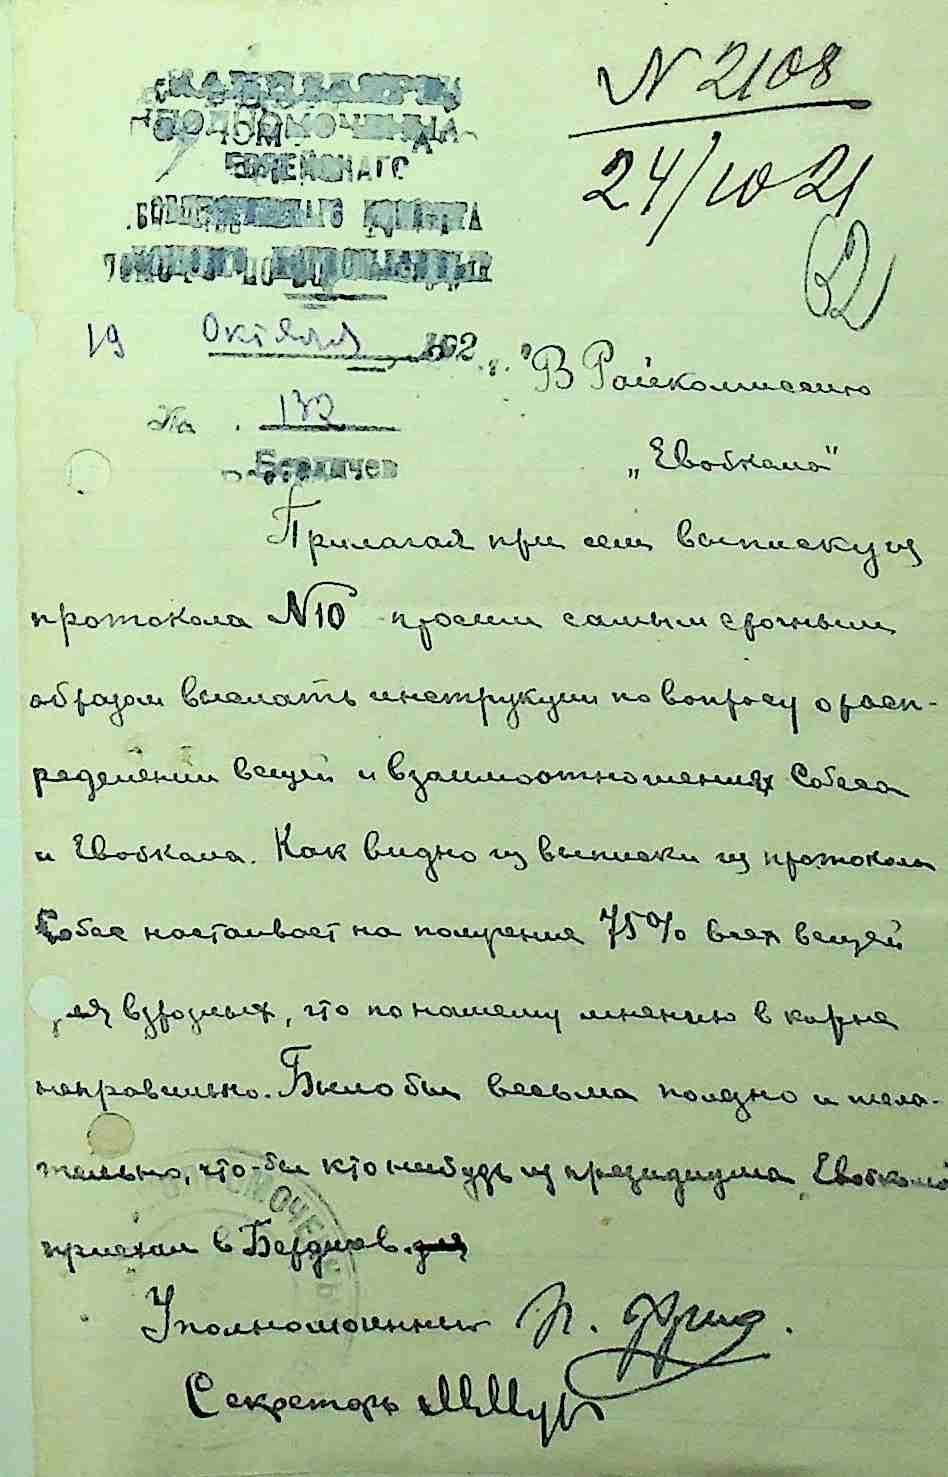 КАНЦЕЛЯРИЯ
УПОЛНОМОЧЕННАГО
ЕВРЕЙСКАГО
ОБЩЕСТВЕННАГО КОМИТЕТА
ПОМОЩИ ПО
N 2108
24/10 21
62
19 Октября 192 г.
No. 132
Бердичев
В Райкомиссию
„Евобкома"
Прилагая при сем выписку из
протокола N10 просим самым срочным
образом выслать инструкции по вопросу о расп-
ределении вещей и взаимоотношениях Собеса
и Евобкома. Как видно из выписки из протокола
Собес настаивает на получение 75% всех вещей
для взрозлых, что по нашему мнению в корне
неправильно. Было бы весьма полезно и жела-
тельно, что-бы кто нибудь из президиума Евобкома
приехал в Бердичев. для
Уполномоченный И. Фрид.
Секретарь